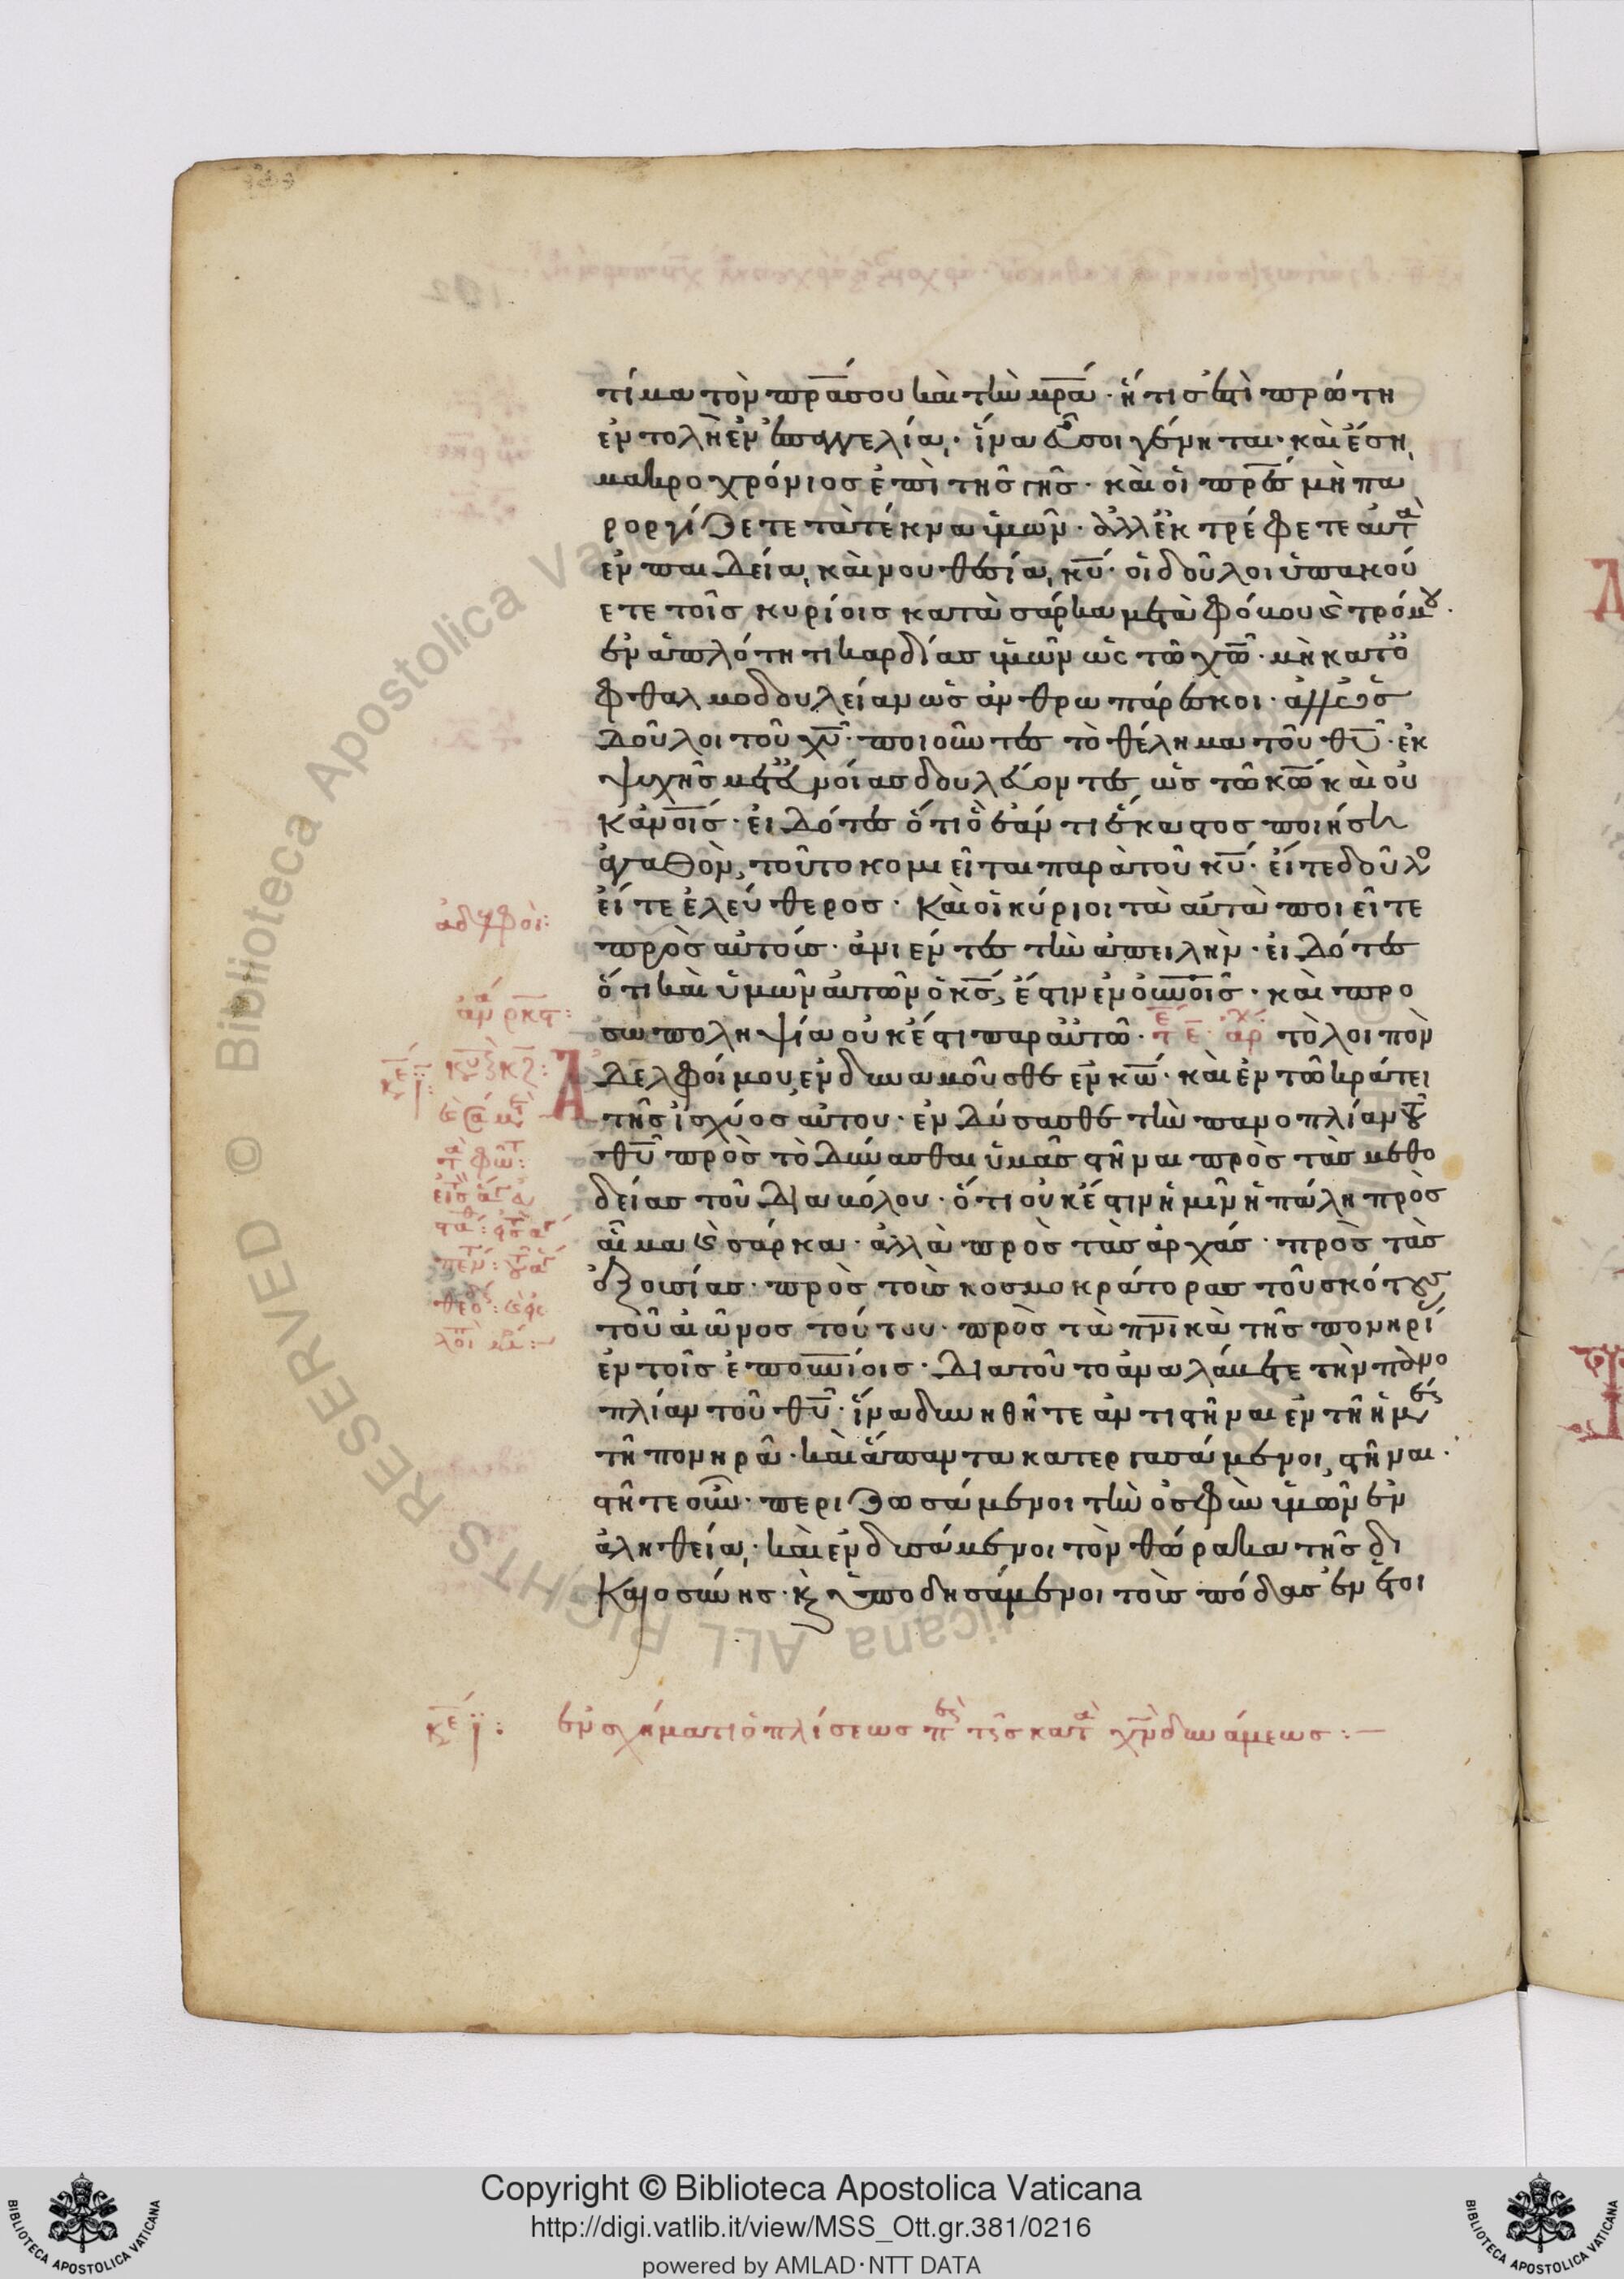 τίμα τὸν πρ̅α σου καὶ τὴν μρ̅α · ἥτις ἐστὶ πρώτη
ἐντολὴ ἐν ἐπαγγελίᾳ · ἵνα εὖ σοι γένηται · καὶ ἔσῃ
μακροχρόνιος ἐπὶ τῆς γῆς · καὶ οἱ πρ̅ες μὴ πα
ροργίζετε τὰ τέκνα ὑμῶν · ἀλλ' ἐκτρέφετε αὐτὰ
ἐν παιδείᾳ καὶ νουθεσίᾳ κυ̅ · οἱ δοῦλοι ὑπακού
ετε τοῖς κυρίοις κατὰ σάρκα μετὰ φόβου καὶ τρόμου ·
ἐν ἁπλότητι καρδίας ὑμῶν ὡς τῶ χω̅ · μὴ κατ' ὀ
φθαλμοδουλείαν ὡς ἀνθρωπάρεσκοι · ἀλλ' ὡς
δοῦλοι τοῦ χυ̅ · ποιοῦντες τὸ θέλημα τοῦ θυ̅ · ἐκ
ψυχῆς μετ' εὐνοίας δουλεύοντες ὡς τῶ κω̅ καὶ οὐ
κ ἀνο̅ις · εἰδότες ὅτι ὃ ἐάν τι ἕκαστος ποιήσῃ
ἀγαθὸν, τοῦτο κομιεῖται παρὰ τοῦ κυ̅ · εἴτε δοῦλο
εἴτε ἐλεύθερος · Καὶ οἱ κύριοι τὰ αὐτὰ ποιεῖτε
πρὸς αὐτούς · ἀνιέντες τὴν ἀπειλήν · εἰδότες
ὅτι καὶ ὑμῶν αὐτῶν ὁ κς̅, ἔστιν ἐν οὐνο̅ις · καὶ προ
σωποληψία οὐκ ἔστι παρ' αὐτῶ · τε̅ ε̅ · ἀρχ τὸ λοιπὸν
Ἀδελφοί μου, ἐνδυναμοῦσθε ἐν κω̅ · καὶ ἐν τῶ κράτει
τῆς ἰσχύος αὐτου · ἐνδύσασθε τὴν πανοπλίαν τοῦ
θυ̅ πρὸς τὸ δύνασθαι ὑμᾶς στῆναι πρὸς τὰς μεθο
δείας τοῦ Διαβόλου · ὅτι οὐκ ἔστιν ἡμῖν ἡ πάλη πρὸς
αἷμα καὶ σάρκα · ἀλλὰ πρὸς τὰς ἀρχάς · πρὸς τὰς
ἐξουσίας · πρὸς τοὺς κοσμοκράτορας τοῦ σκότους
τοῦ αἰῶνος τούτου · πρὸς τὰ πν̅ικὰ τῆς πονηρί
ἐν τοῖς ἐπουν̅ίοις · Διὰ τοῦτο ἀναλάβετε τὴν πανο
πλίαν τοῦ θυ̅ · ἵνα δυνηθῆτε ἀντιστῆναι ἐν τῆ ἡμέ
τῆ πονηρᾶ · καὶ ἅπαντα κατεργασάμενοι, στῆναι ·
στῆτε οὖν · περιζωσάμενοι τὴν ὀσφὺν ὑμῶν ἐν
ἀληθείᾳ · καὶ ἐνδυσάμενοι τὸν θώρακα τῆς δι
καιοσύνης · κ ὑποδησάμενοι τοὺς πόδας ἐν ἑτοι
ἀδελφοὶ :
κε̅ :
ἐν σχήματι ὁπλίσεως πε τῆς κατὰ χν̅ δυνάμεως : —
Copyright © Biblioteca Apostolica Vaticana
http://digi.vatlib.it/view/MSS_Ott.gr.381/0216
powered by AMLAD·NTT DATA
BIBLIOTECA APOSTOLICA VATICANA
BIBLIOTECA APOSTOLICA VATICANA